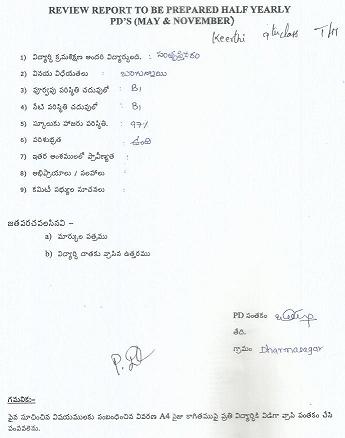 REVIEW REPORT TO BE PREPARED HALF YEARLY
PD'S (MAY & NOVEMBER)
Keerthi 9th class T/M
1) విద్యార్థి క్రమశిక్షణ అందరి విద్యార్థులది. :
2) వినయ విధేయతలు :
3) పూర్వపు పరిస్థితి చదువులో : B1
4) నేటి పరిస్థితి చదువులో : B1
5) స్కూలుకు హాజరు పరిస్థితి. : 97%
6) పరిశుభ్రత : ఉంది
7) ఇతర అంశములలో ప్రావీణ్యత :
8) అభిప్రాయాలు / సలహాలు :
9) కమిటీ సభ్యుల సూచనలు :
జతపరచవలసినవి –
a) మార్కుల పత్రము
b) విద్యార్థి దాతకు వ్రాసిన ఉత్తరము
PD సంతకం
తేది.
గ్రామం Dharmasagar
గమనిక:-
పైన సూచించిన విషయములకు సంబంధించిన వివరణ A4 సైజు కాగితముపై ప్రతి విద్యార్థికి విడిగా వ్రాసి సంతకం చేసి
పంపవలెను.